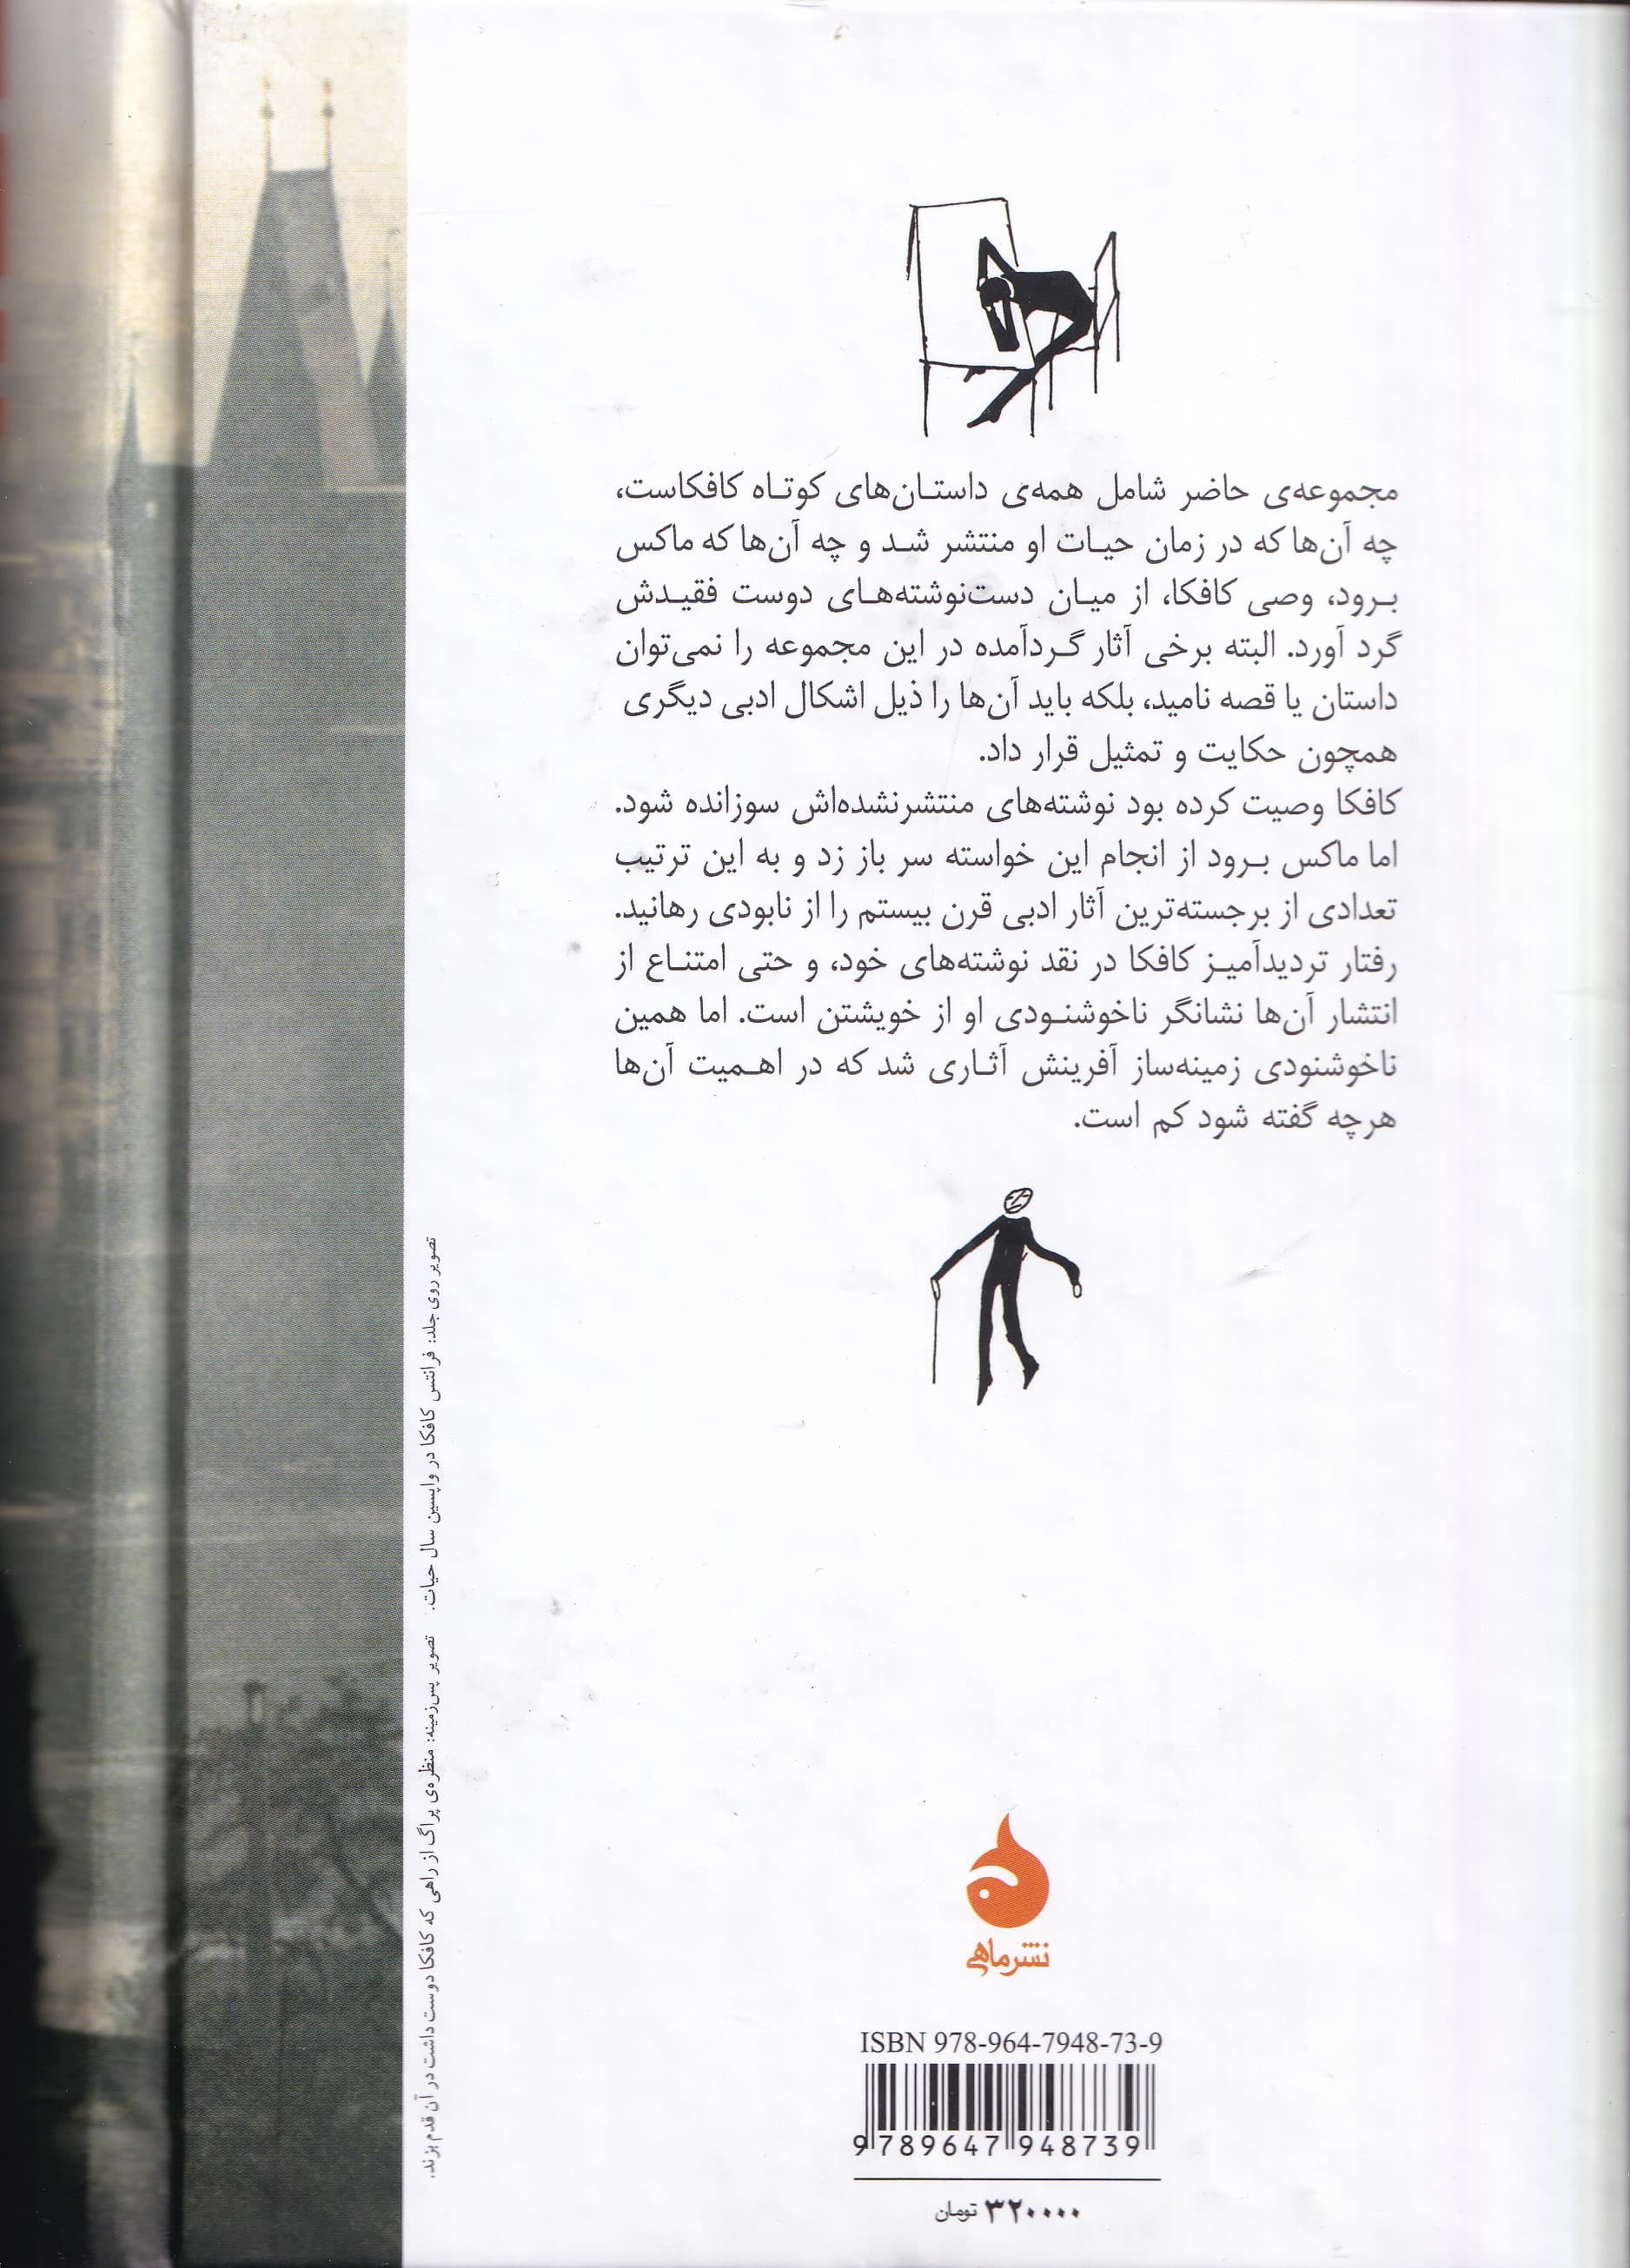 مجموعه‌ی حاضر شامل همه‌ی داستان‌های کوتاه کافکاست،
چه آن‌ها که در زمان حیات او منتشر شد و چه آن‌ها که ماکس
برود، وصی کافکا، از میان دست‌نوشته‌های دوست فقیدش
گرد آورد. البته برخی آثار گردآمده در این مجموعه را نمی‌توان
داستان یا قصه نامید، بلکه باید آن‌ها را ذیل اشکال ادبی دیگری
همچون حکایت و تمثیل قرار داد.
کافکا وصیت کرده بود نوشته‌های منتشرنشده‌اش سوزانده شود.
اما ماکس برود از انجام این خواسته سر باز زد و به این ترتیب
تعدادی از برجسته‌ترین آثار ادبی قرن بیستم را از نابودی رهانید.
رفتار تردیدآمیز کافکا در نقد نوشته‌های خود، و حتی امتناع از
انتشار آن‌ها نشانگر ناخوشنودی او از خویشتن است. اما همین
ناخوشنودی زمینه‌ساز آفرینش آثاری شد که در اهمیت آن‌ها
هرچه گفته شود کم است.
تصویر روی جلد: فرانتس کافکا در واپسین سال حیات. تصویر پس‌زمینه: منظره‌ی پراگ از راهی که کافکا دوست داشت در آن قدم بزند.
نشر ماهی
ISBN 978-964-7948-73-9
9 789647 948739
۳۲۰۰۰۰ تومان